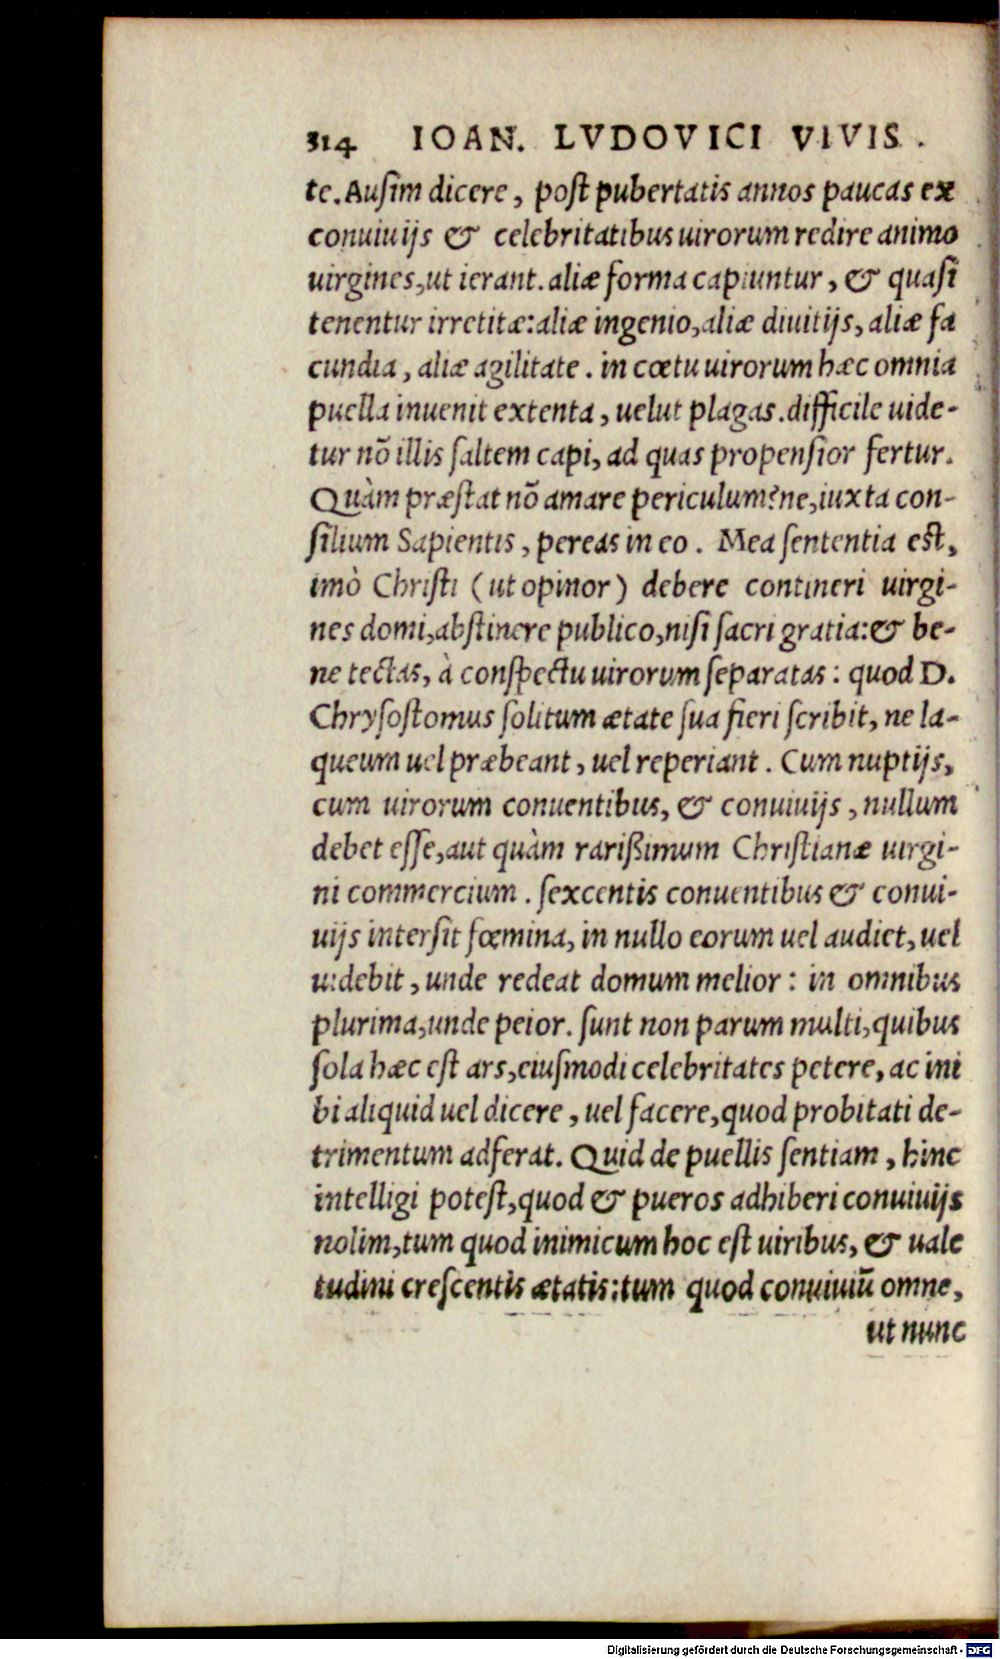 314 IOAN. LVDOVICI VIVIS.
te. Ausim dicere, post pubertatis annos paucas ex
conuiuijs & celebritatibus uirorum redire animo
uirgines, ut ierant. aliæ forma capiuntur, & quasi
tenentur irretitæ: aliæ ingenio, aliæ diuitijs, aliæ fa
cundia, aliæ agilitate. in cœtu uirorum hæc omnia
puella inuenit extenta, uelut plagas. difficile uide-
tur nõ illis saltem capi, ad quas propensior fertur.
Quàm præstat nõ amare periculum? ne, iuxta con-
silium Sapientis, pereas in eo. Mea sententia est,
imò Christi (ut opinor) debere contineri uirgi-
nes domi, abstinere publico, nisi sacri gratia: & be-
ne tectas, à conspectu uirorum separatas: quod D.
Chrysostomus solitum ætate sua fieri scribit, ne la-
queum uel præbeant, uel reperiant. Cum nuptijs,
cum uirorum conuentibus, & conuiuijs, nullum
debet esse, aut quàm rarißimum Christianæ uirgi-
ni commercium. sexcentis conuentibus & conui-
uijs intersit fœmina, in nullo eorum uel audiet, uel
uidebit, unde redeat domum melior: in omnibus
plurima, unde peior. sunt non parum multi, quibus
sola hæc est ars, eiusmodi celebritates petere, ac ini
bi aliquid uel dicere, uel facere, quod probitati de-
trimentum adferat. Quid de puellis sentiam, hinc
intelligi potest, quod & pueros adhiberi conuiuijs
nolim, tum quod inimicum hoc est uiribus, & uale
tudini crescentis ætatis: tum quod conuiuiũ omne,
ut nunc
Digitalisierung gefördert durch die Deutsche Forschungsgemeinschaft - DFG